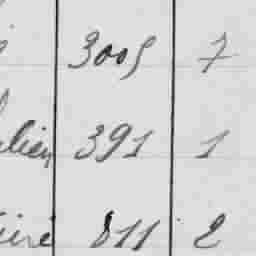 3005 7
lien 391 1
811 2